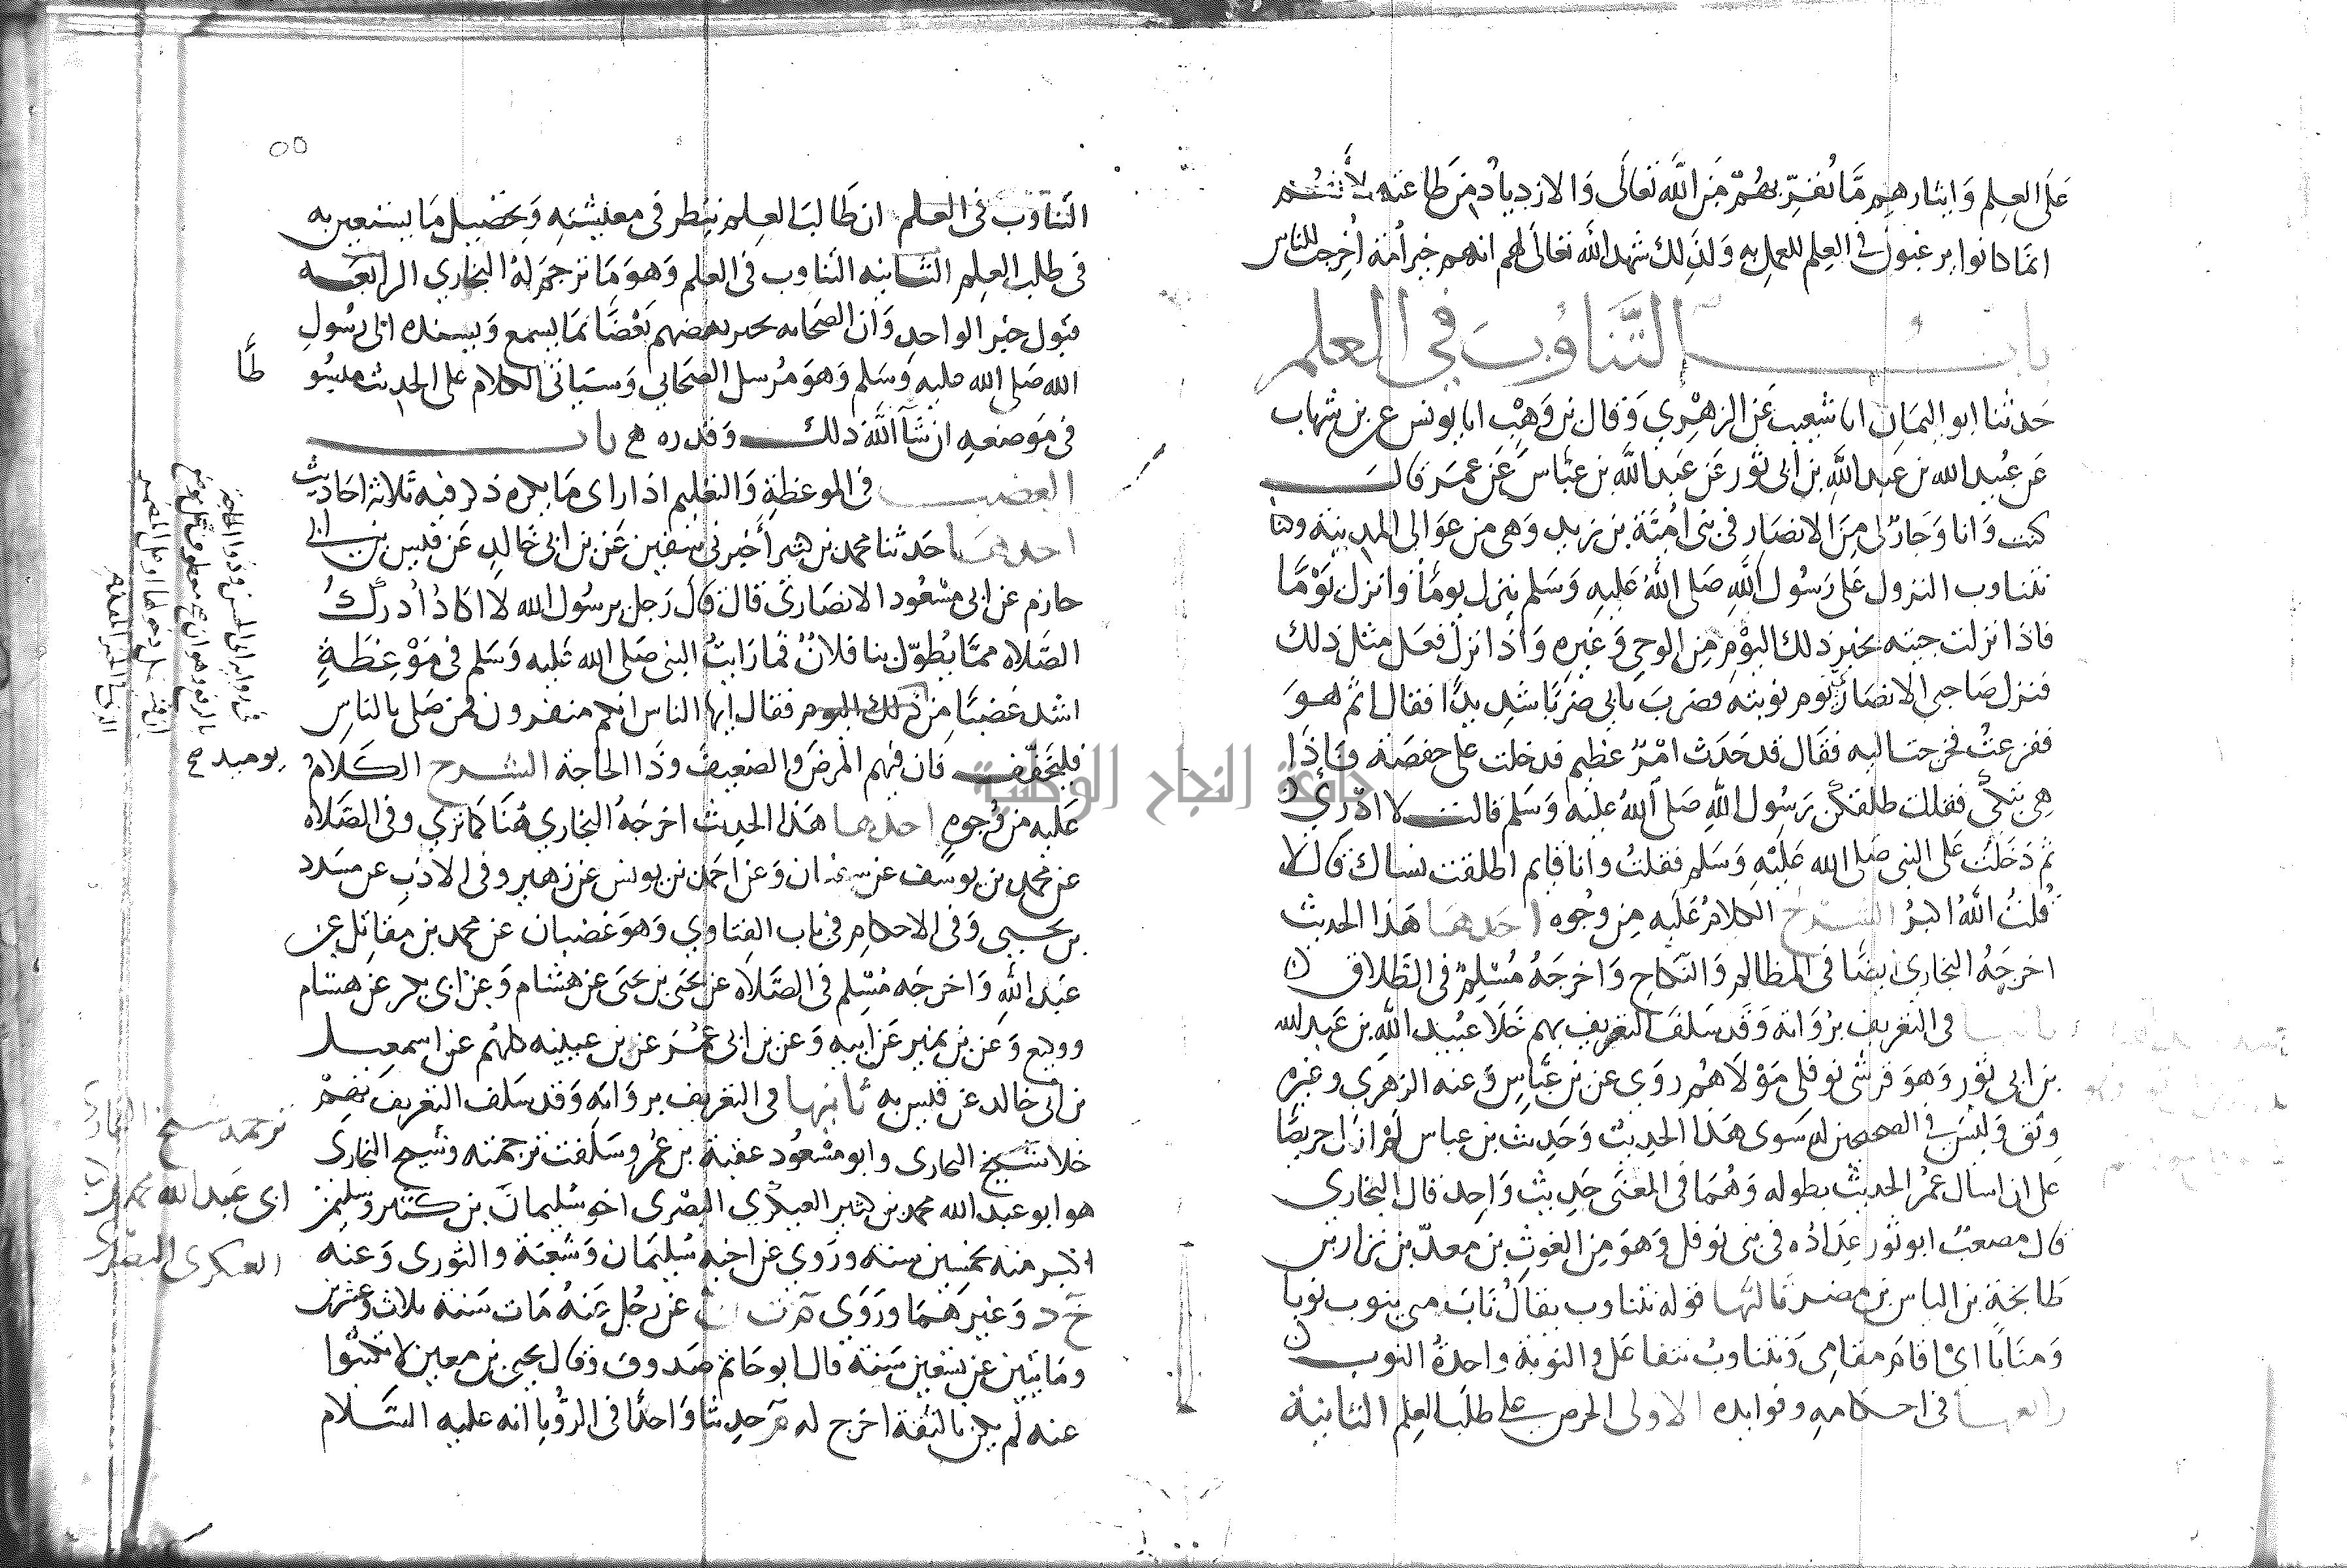 على العلم وايثارهم ما يقربهم من الله تعالى والازدياد من طاعته لانهم
انما كانوا يرغبون في العلم للعمل به ولذلك شهد الله تعالى لهم انهم خير أمة أخرجت للناس
باب التناوب في العلم
حدثنا ابو اليمان انا شعيب عن الزهري وقال بن وهب انا يونس عن بن شهاب
عن عبيد الله بن عبد الله بن أبي ثور عن عبد الله بن عباس عن عمر قال
كنت وانا وجار لي من الانصار في بني امية بن زيد وهي من عوالي المدينة وكنا
نتناوب النزول على رسول الله صلى الله عليه وسلم ينزل يوما وانزل يوما
فاذا نزلت جيته بخبر ذلك اليوم من الوحي وغيره واذا نزل فعل مثل ذلك
فنزل صاحبي الانصاري يوم نوبته فضرب بابي ضربا شديدا فقال اثم هو
ففزعت فخرجت اليه فقال قد حدث امر عظيم فدخلت على حفصة فاذا
هي تبكي فقلت طلقكن رسول الله صلى الله عليه وسلم قالت لا ادري
ثم دخلت على النبي صلى الله عليه وسلم فقلت وانا قايم اطلقت نساك قال لا
قلت الله اكبر الشرح الكلام عليه من وجوه احدها هذا الحديث
اخرجه البخاري ايضا في المظالم والنكاح واخرجه مسلم في الطلاق
ثانيها في التعريف برواته وقد سلف التعريف بهم خلا عبيد الله بن عبد الله
بن ابي ثور وهو قرشي نوفلي مولاهم روى عن بن عباس وعنه الزهري وغيره
وثق وليس في الصحيحين له سوى هذا الحديث وحديث بن عباس لم ازل حريصا
على ان اسال عمر الحديث بطوله وهما في المعنى حديث واحد قال البخاري
قال مصعب ابو ثور عداده في بني نوفل وهو من الغوث بن معد بن نزار بن
طابخة بن الياس بن مضر ثالثها قوله نتناوب يقال ناب عني ينوب نوبا
ومنابا اي قام مقامي ونتناوب نتفاعل والنوبة واحدة النوب
رابعها في احكامه وفوايده الاولى الحرص على طلب العلم الثانية
التناوب في العلم ان طالب العلم ينظر في معيشته وتحصيل ما يستعين به
في طلب العلم الثانيه التناوب في العلم وهو ما ترجم له البخاري الرابعه
قبول خبر الواحد وان الصحابه يخبر بعضهم بعضا بما يسمع ويسنده الى رسول
الله صلى الله عليه وسلم وهو مرسل الصحابي وسياتي الكلام على الحديث مبسو
طا
في موضعه ان شآ الله ذلك وقدره باب
الغضب في الموعظة والتعليم اذا راى ما يكره ذكر فيه ثلاثه احاديث
احدها حدثنا محمد بن كثير أخبرني سفين عن بن ابي خالد عن قيس بن ابي
حازم عن ابي مسعود الانصاري قال قال رجل يرسول الله لا اكاد ادرك
الصلاة مما يطول بنا فلان فما رايت النبي صلى الله عليه وسلم في موعظة
اشد غضبا من ذلك اليوم فقال ايها الناس انكم منفرون فمن صلى بالناس
يوميد
فليخفف فان فيهم المرض والضعيف وذا الحاجة الشرح الكلام
عليه من وجوه احدها هذا الحديث اخرجه البخاري هنا كما ترى وفي الصلاة
عن محمد بن يوسف عن سفيان وعن احمد بن يونس عن زهير وفي الادب عن مسدد
بن يحيى وفي الاحكام في باب الفتاوي وهو غضبان عن محمد بن مقاتل عن
عبد الله واخرجه مسلم في الصلاة عن يحيى بن يحيى عن هشام وعن ابي بكر عن هشام
ووكيع وعن بن نمير عن ابيه وعن بن ابي عمر عن بن عيينه كلهم عن اسمعيل
بن ابي خالد عن قيس به ثانيها في التعريف برواته وقد سلف التعريف بهم
خلا شيخ البخاري وابو مسعود عقبة بن عمرو سلفت ترجمته وشيخ البخاري
هو ابو عبد الله محمد بن كثير العبدي البصري اخو سليمان بن كثير وسليمن
اكبر منه بخمسين سنه وروي عن اخيه سليمان وشعبة والثوري وعنه
خ د وغيرهما وروى م ت ن عن رجل عنه مات سنة ثلاث وعشرين
وماتين عن تسعين سنة قال ابو حاتم صدوق وقال يحيى بن معين لا تكتبوا
عنه لم يكن بالثقة اخرج له م حديثا واحدا في الرؤيا انه عليه السلام
ترجمه شيخ البخاري
ابي عبد الله محمد
العسكري البصري
جامعة النجاح الوطنية